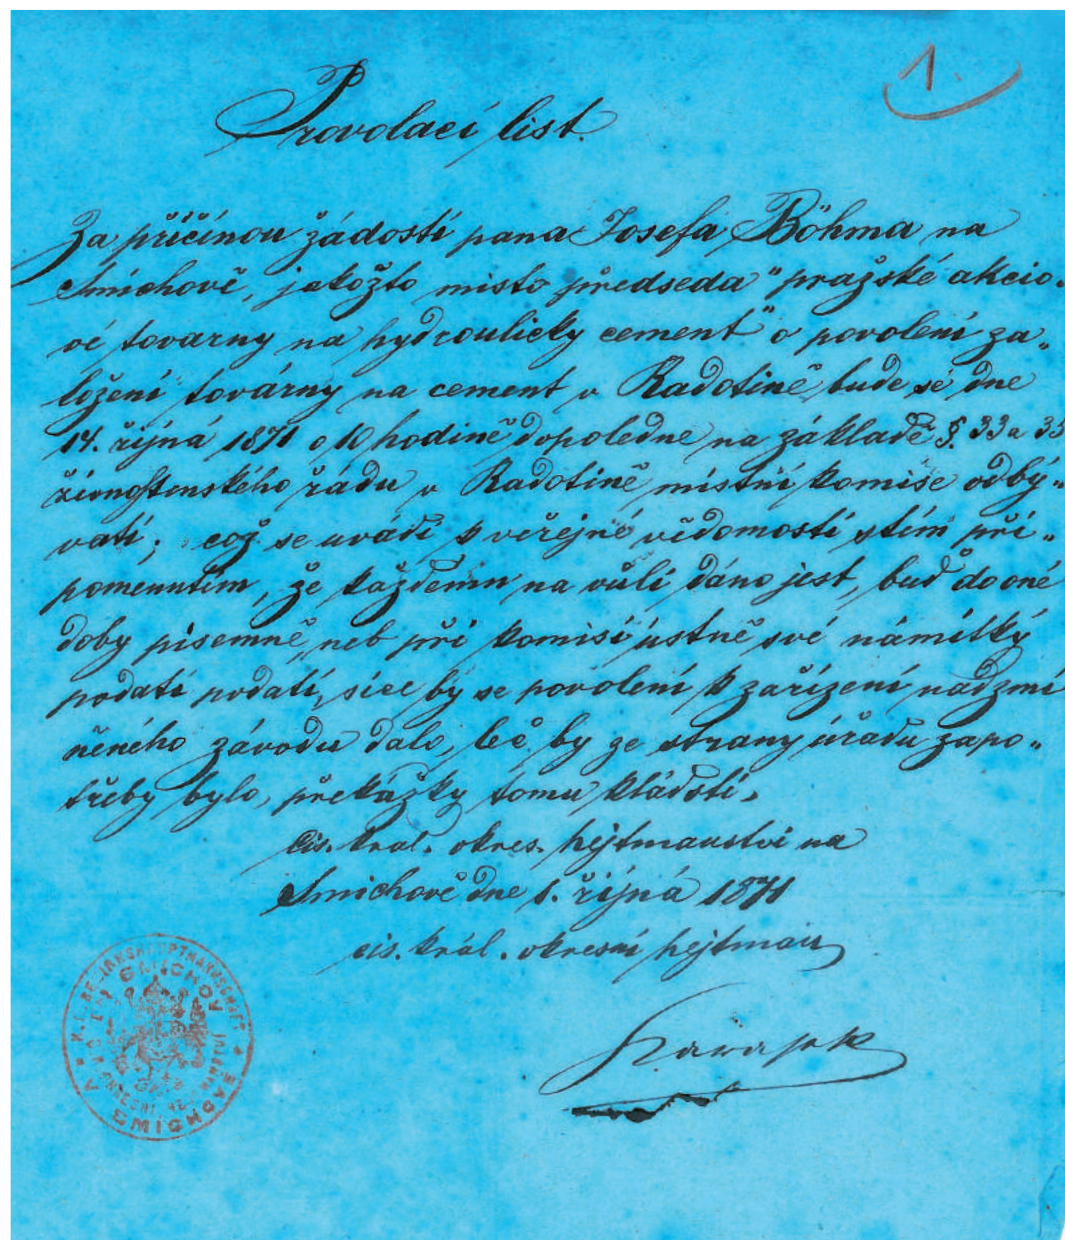 1.
Provolací list.
Za příčinou žádosti pana Josefa Böhma na
Smíchově, jakožto místo předseda "pražské akcio-
vé továrny na hydroulický cement" o povolení za„
ložení továrny na cement v Radotíně bude se dne
14. říjná 1871 o 10 hodině dopoledne na základě §. 33 a 35
živnostenského řádu v Radotíně místní komise odbý„
vati; což se uvádí k veřejné vědomosti stím při„
pomenutím, že každému na vůli dáno jest, buď do oné
doby písemně, neb při komisi ústně své námitky
podati podati, sice by se povolení k zařízení nadzmí
něného závodu dalo, leč by ze strany úřadu zapo„
třeby bylo, překážky tomu kládsti.
Cis. kral. okres. hejtmanství na
Smíchově dne 1. říjná 1871
cis. král. okresní hejtman
K. K. BEZIRKSHAUPTMANNSCHAFT
SMICHOV
C. K. OKRESNÍ HEJTMANSTVÍ
NA SMICHOVĚ